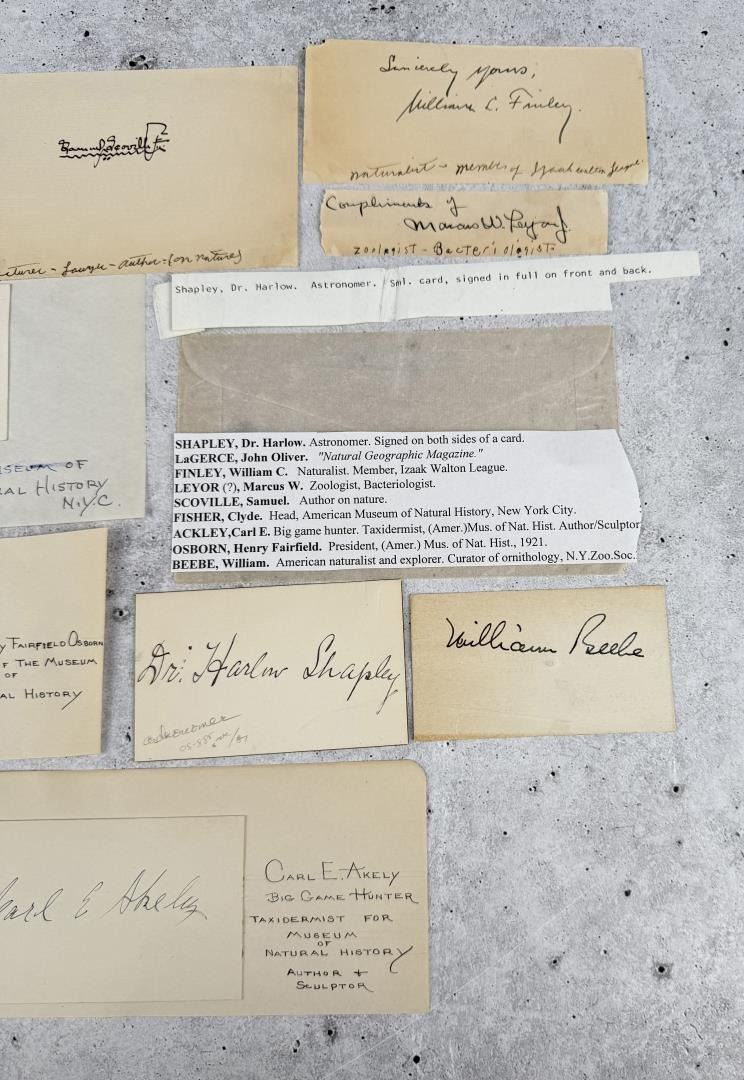 Samuel Scoville Jr.
Lawyer - Author - (on nature)
Sincerely yours,
William L. Finley.
naturalist - member of Izaak Walton League
Compliments of
Marcus W. Lyon Jr.
Zoologist - Bacteriologist -
Shapley, Dr. Harlow. Astronomer. Sml. card, signed in full on front and back.
SHAPLEY, Dr. Harlow. Astronomer. Signed on both sides of a card.
LaGERCE, John Oliver. "Natural Geographic Magazine."
FINLEY, William C. Naturalist. Member, Izaak Walton League.
LEYOR (?), Marcus W. Zoologist, Bacteriologist.
SCOVILLE, Samuel. Author on nature.
FISHER, Clyde. Head, American Museum of Natural History, New York City.
ACKLEY,Carl E. Big game hunter. Taxidermist, (Amer.)Mus. of Nat. Hist. Author/Sculptor
OSBORN, Henry Fairfield. President, (Amer.) Mus. of Nat. Hist., 1921.
BEEBE, William. American naturalist and explorer. Curator of ornithology, N.Y.Zoo.Soc.
SEUM OF
AL HISTORY
N.Y.C.
Y FAIRFIELD OSBORN
F THE MUSEUM
OF
AL HISTORY
Dr. Harlow Shapley
astronomer
William Beebe
Carl E Akeley
CARL E. AKELY
BIG GAME HUNTER
TAXIDERMIST FOR
MUSEUM
OF
NATURAL HISTORY
AUTHOR +
SCULPTOR